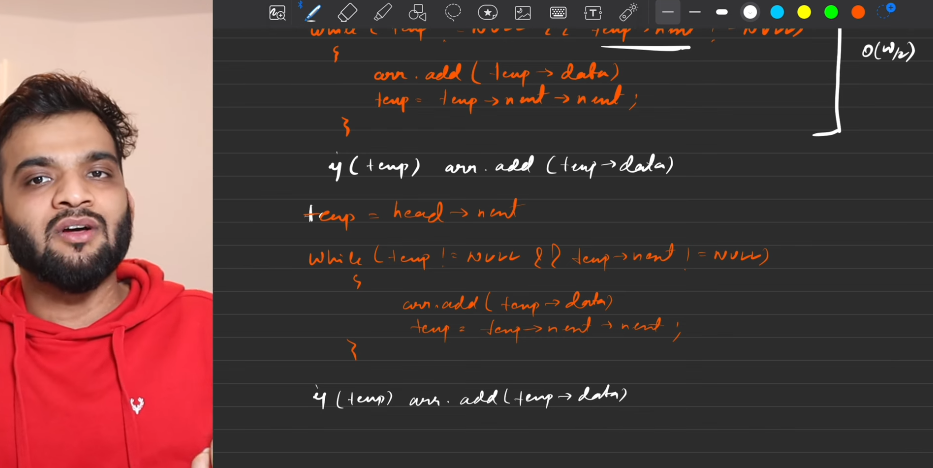 while ( temp != NULL && temp → next != NULL)
{
arr.add ( temp → data)
temp = temp → next → next ;
}
O(N/2)
if (temp) arr.add (temp → data)
temp = head → next
while (temp != NULL && temp → next != NULL)
{
arr.add ( temp → data)
temp = temp → next → next ;
}
if (temp) arr.add (temp → data)